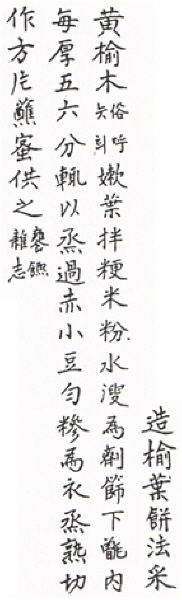 造榆葉餠法采
黃榆木俗呼矢斗嫰葉拌粳米粉水溲爲劑篩下甑內
每厚五六分輒以烝過赤小豆勻糝爲衣烝熟切
作方片蘸蜜供之饔𩟄雜志